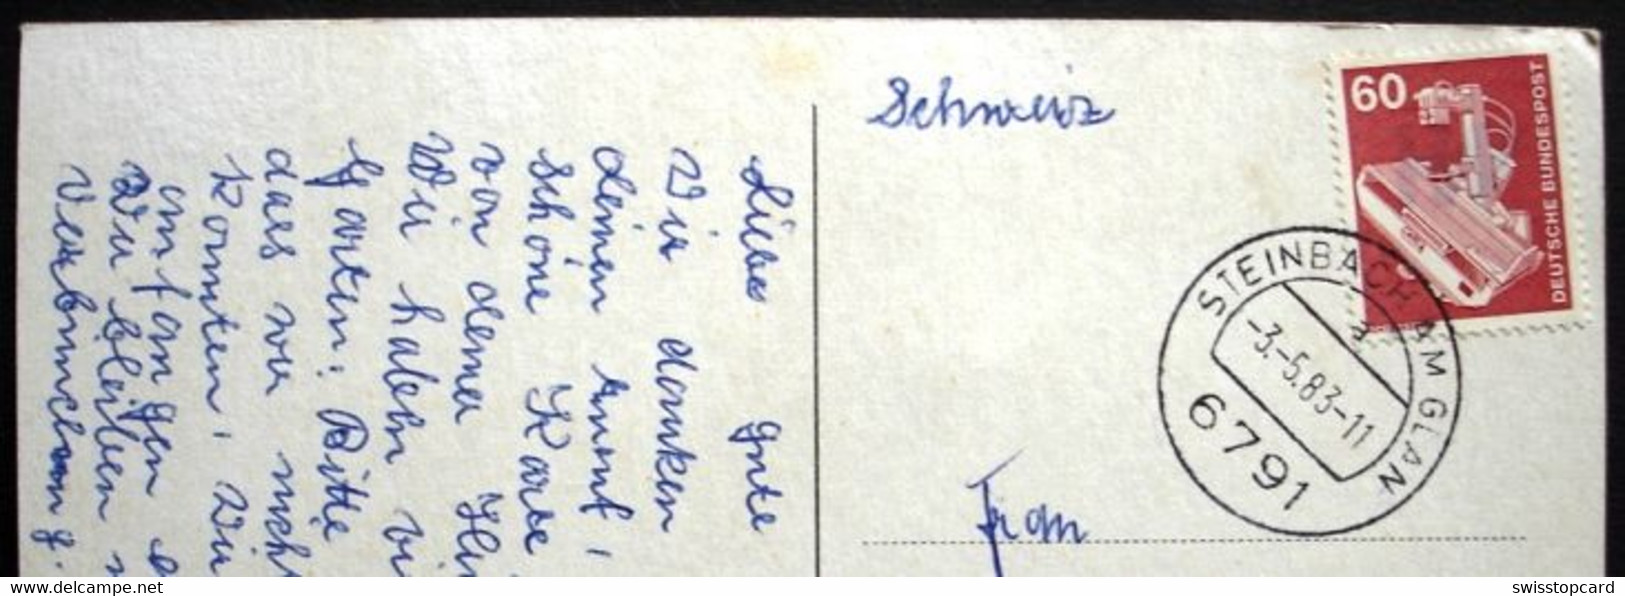 Schweiz
60
DEUTSCHE BUNDESPOST
STEINBACH AM GLAN
-3.-5.83-11
a
6791
Frau
Liebe Gute
Wir danken
deinen
schöne Karte
von deiner
Wir haben
Garten: Bitte
das wir nicht
konnten, Wir
anfangen
Wir bleiben
Verbindung.
www.delcampe.net
swisstopcard